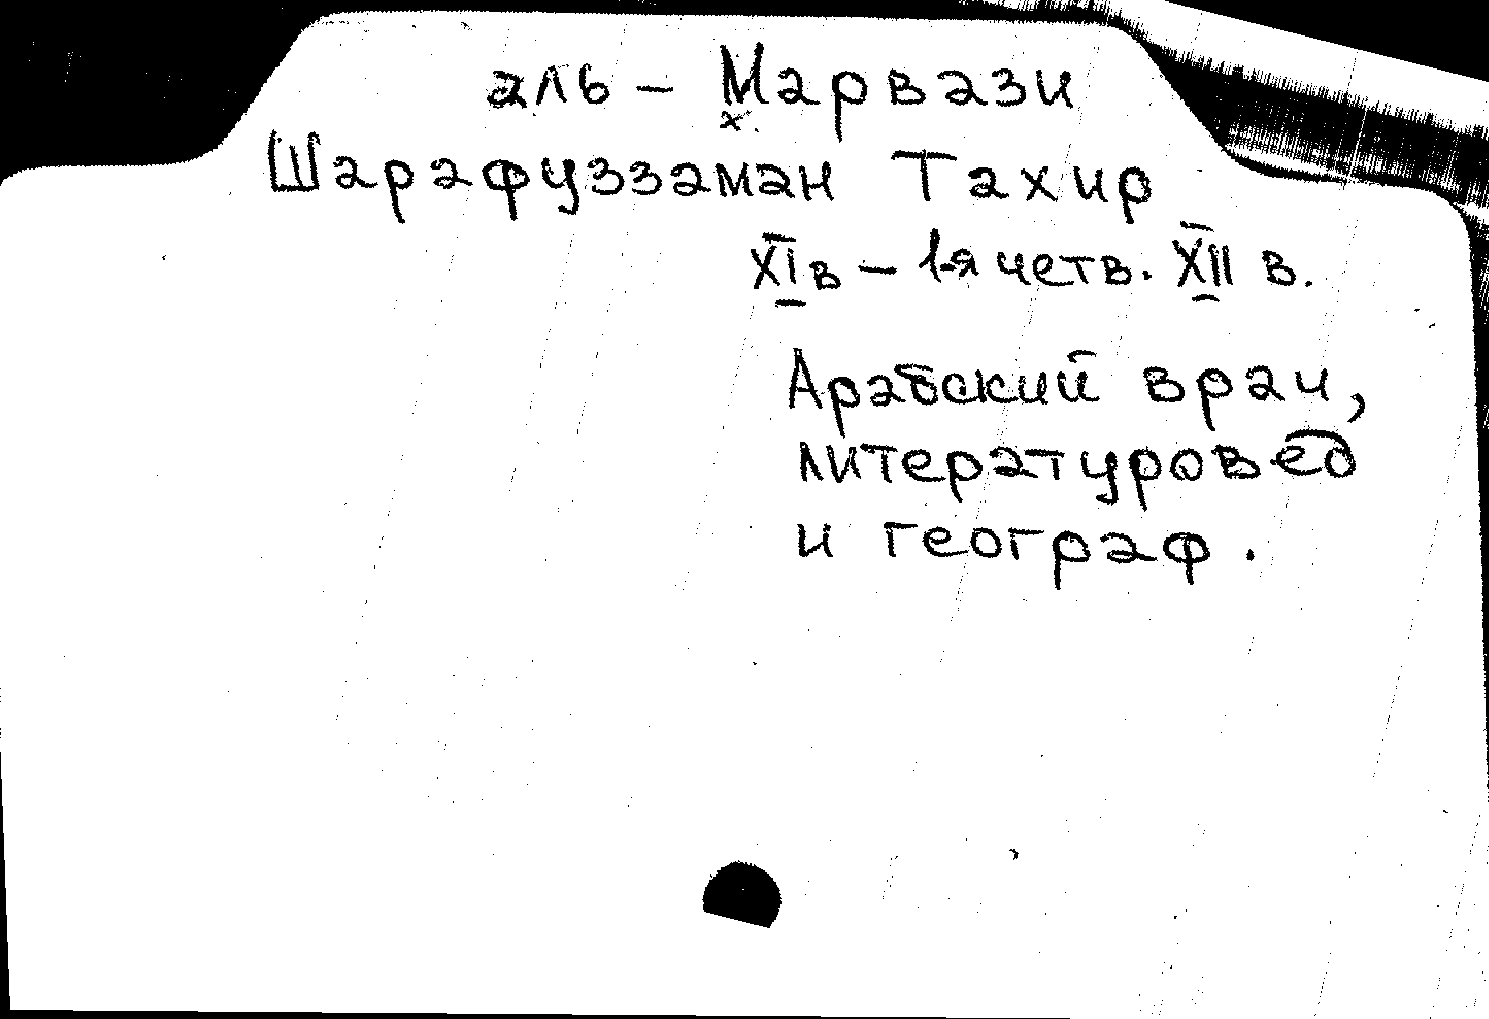 аль - Марвази
Шарафуззаман Тахир
XI в - 1-я четв. XII в.
Арабский врач,
литературовед
и географ.